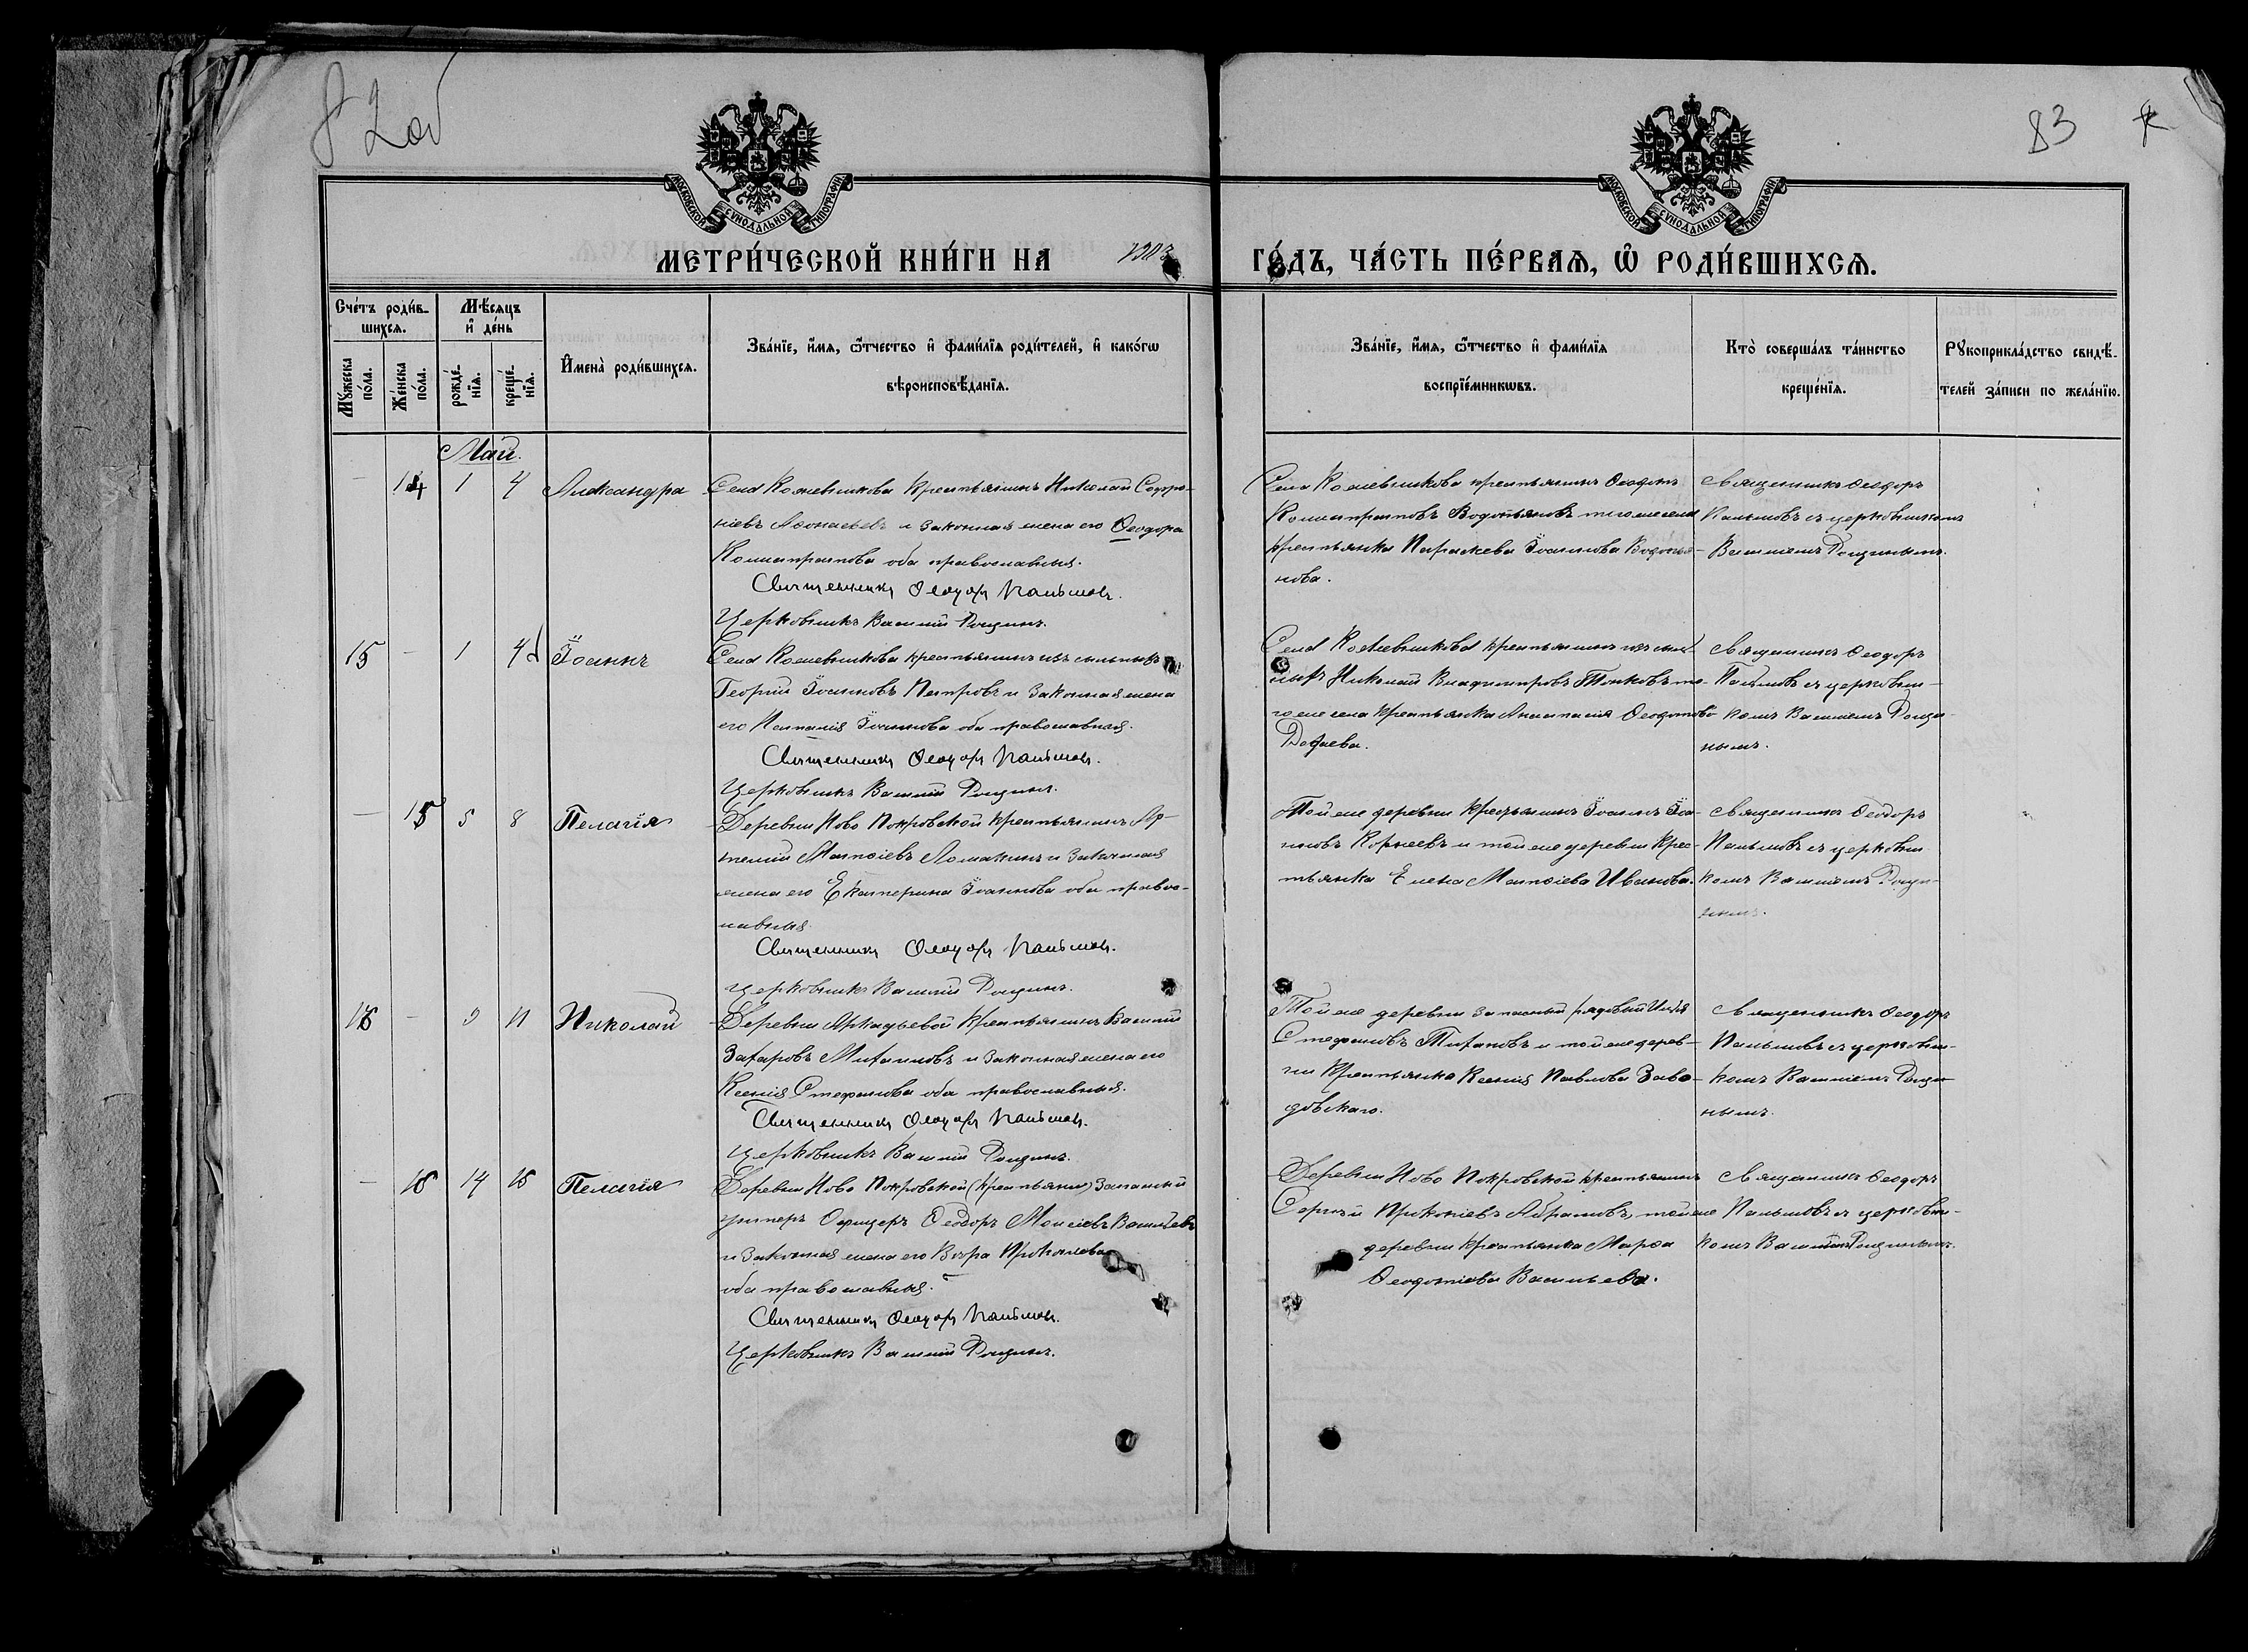 82об
83
МОСКОВСКОЙ СѴНОДАЛЬНОЙ ТИПОГРАФІИ
МОСКОВСКОЙ СѴНОДАЛЬНОЙ ТИПОГРАФІИ
МЕТРИ́ЧЕСКОЙ КНИ́ГИ НА 1903
ГО́ДЪ, ЧА́СТЬ ПЕ́РВАѦ, Ѡ҆ РОДИ́ВШИХСѦ.
Сче́тъ роди́в-
шихсѧ.
Мꙋ́жеска
по́ла.
Же́нска
по́ла.
Мѣ́сѧцъ
и҆ де́нь
рожде́-
нїѧ.
креще́-
нїѧ.
И҆мена̀ роди́вшихсѧ.
Зва́нїе, и҆́мѧ, ѻ҆́тчество и҆ фами́лїѧ роди́телей, и҆ како́гѡ
вѣроисповѣ́данїѧ.
Зва́нїе, и҆́мѧ, ѻ҆́тчество и҆ фами́лїѧ
воспрїе́мникѡвъ.
Кто̀ соверша́лъ та́инство
креще́нїѧ.
Рꙋкоприкла́дство свидѣ́-
телей за́писи по жела́нїю.
Май.
— 14 1 4 Александра
Села Кожевникова крестьянинъ Николай Софро-
ніевъ и законная жена его Ѳеодора
Калистратова оба православныя.
Священникъ Ѳеодоръ Пальмовъ.
Церковникъ Василій Рощинъ.
Села Кожевникова крестьянинъ Ѳеодотъ
Калистратовъ Водопьяновъ того же села
крестьянка Параскева Іоаннова Водопья-
нова.
Священникъ Ѳеодоръ
Пальмовъ съ церковникомъ
Василіемъ Рощинымъ.
15 — 1 4 Іоаннъ
Села Кожевникова крестьянинъ изъ ссыльныхъ
Георгій Іоанновъ Петровъ и законная жена
его Іоаннова оба православныя.
Священникъ Ѳеодоръ Пальмовъ.
Церковникъ Василій Рощинъ.
Села Кожевникова крестьянинъ изъ ссыль-
ныхъ Николай Владиміровъ то-
го же села крестьянка Анастасія Ѳеодотова
Священникъ Ѳеодоръ
Пальмовъ съ церковни-
комъ Василіемъ Рощи-
нымъ.
— 15 5 8 Пелагія
Деревни Ново Покровской крестьянинъ Ар-
темій Матѳіевъ Ломакинъ и законная
жена его Екатерина Іоаннова оба правос-
лавныя.
Священникъ Ѳеодоръ Пальмовъ.
Церковникъ Василій Рощинъ.
Той же деревни крестьянинъ Іоаннъ Іоа-
нновъ Корнеевъ и той же деревни крес-
тьянка Елена Матѳіева Иванова.
Священникъ Ѳеодоръ
Пальмовъ съ церковни
комъ Василіемъ Рощи-
нымъ.
16 — 9 11 Николай
Деревни Аркадьевой крестьянинъ Василій
Захаровъ Михаиловъ и законная жена его
Ксенія Стефанова оба православныя.
Священникъ Ѳеодоръ Пальмовъ.
Церковникъ Василій Рощинъ.
Той же деревни запасный рядовый Илія
Стефановъ Титановъ и той же дерев-
ни крестьянка Ксенія Павлова Заво-
довскаго.
Священникъ Ѳеодоръ
Пальмовъ съ церковни-
комъ Василіемъ Рощи-
нымъ.
— 16 14 15 Пелагія
Деревни Ново Покровской (крестьянинъ) Запасный
унтеръ Офицеръ Ѳеодоръ Моисіевъ Васильевъ
и законная жена его Вѣра Прокопіева
оба православныя.
Священникъ Ѳеодоръ Пальмовъ.
Церковникъ Василій Рощинъ.
Деревни Ново Покровской крестьянинъ
Сергій Прокопіевъ Абрамовъ, той же
деревни крестьянка Марѳа
Ѳеодотіева Васильева.
Священникъ Ѳеодоръ
Пальмовъ съ церковни-
комъ Василіемъ Рощинымъ.